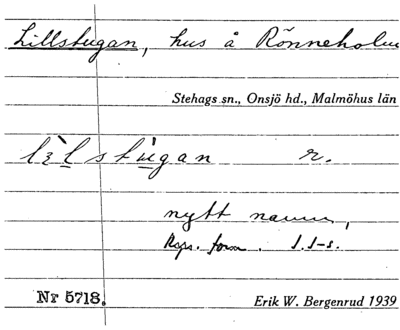 Lillstugan, hus å Rönneholm
Stehags sn., Onsjö hd., Malmöhus län
lìlstùgan r.
nytt namn,
Rgs. form. l.l-s.
Nr 5718.
Erik W. Bergenrud 1939